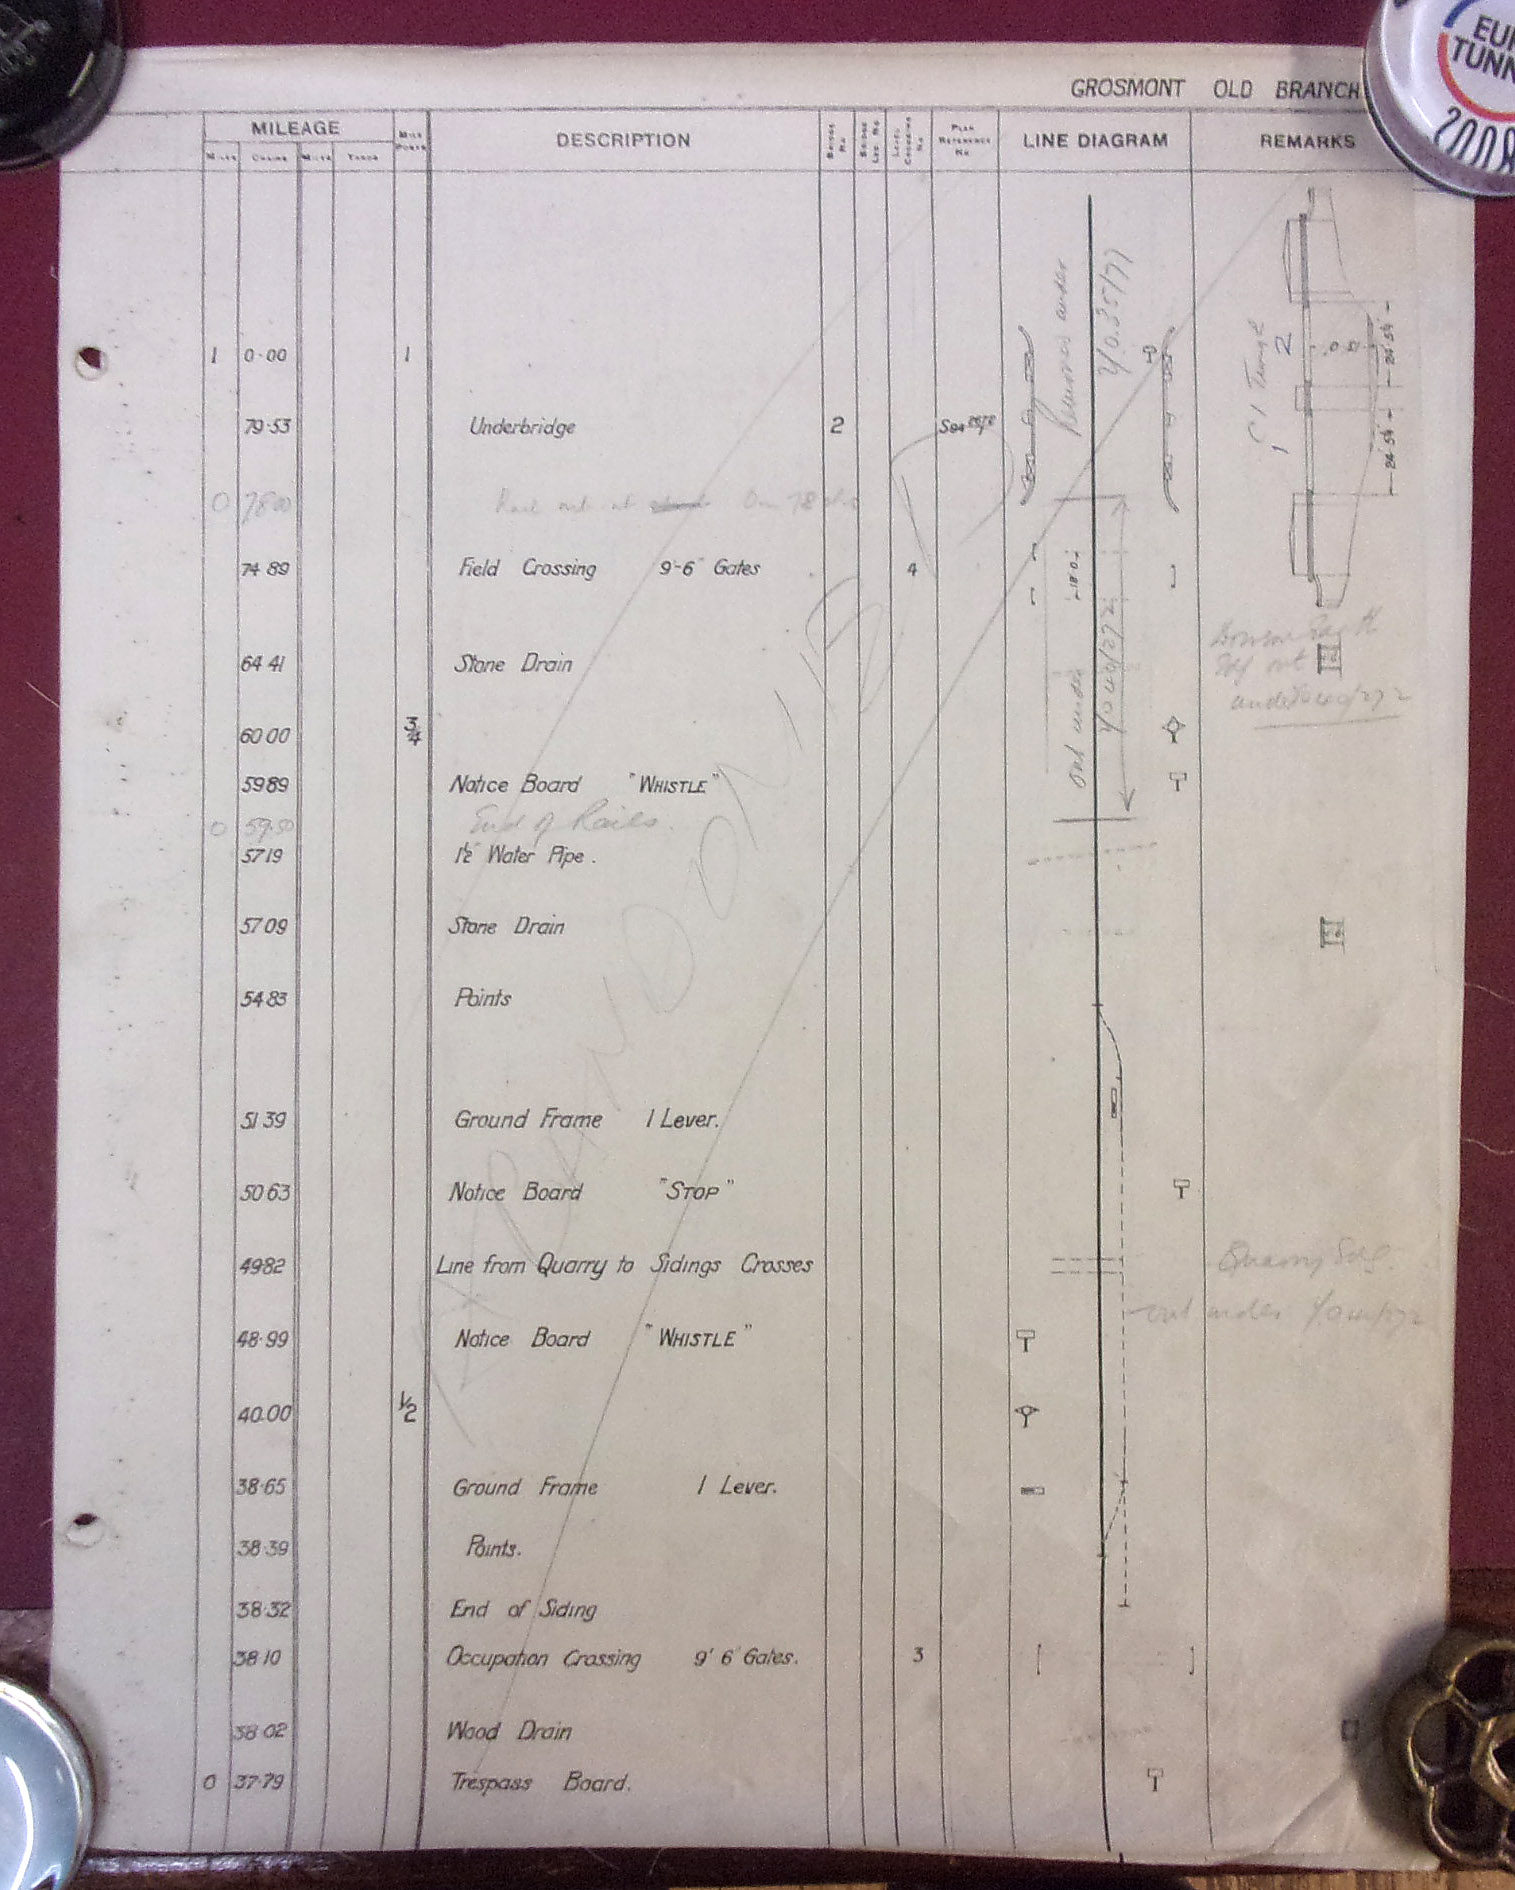 GROSMONT OLD BRANCH
EUR
TUNN
2008
MILEAGE
MILES CHAINS MILES YARDS
MILE POSTS
DESCRIPTION
BRIDGE No
LEVEL CROSSING No
PLAN REFERENCE No
LINE DIAGRAM
REMARKS
1 0·00 1
79·53 Underbridge 2
0 78·00 Rail out at
74 89 Field Crossing 9'-6" Gates 4
64 41 Stone Drain
60 00 3/4
59 89 Notice Board "WHISTLE"
0 59·50 End of Rails.
57 19 1½" Water Pipe.
57 09 Stone Drain
54 83 Points
51 39 Ground Frame 1 Lever.
50 63 Notice Board "STOP"
49 82 Line from Quarry to Sidings Crosses
48·99 Notice Board "WHISTLE"
40.00 1/2
38·65 Ground Frame 1 Lever.
38·39 Points.
38·32 End of Siding
38 10 Occupation Crossing 9' 6" Gates. 3
38 02 Wood Drain
0 37·79 Trespass Board.
ABANDONED
Removed under
Y0.35/77
18·0
out under
24·5¼
24·5¼
1
2
Quarry Sdg.
out under